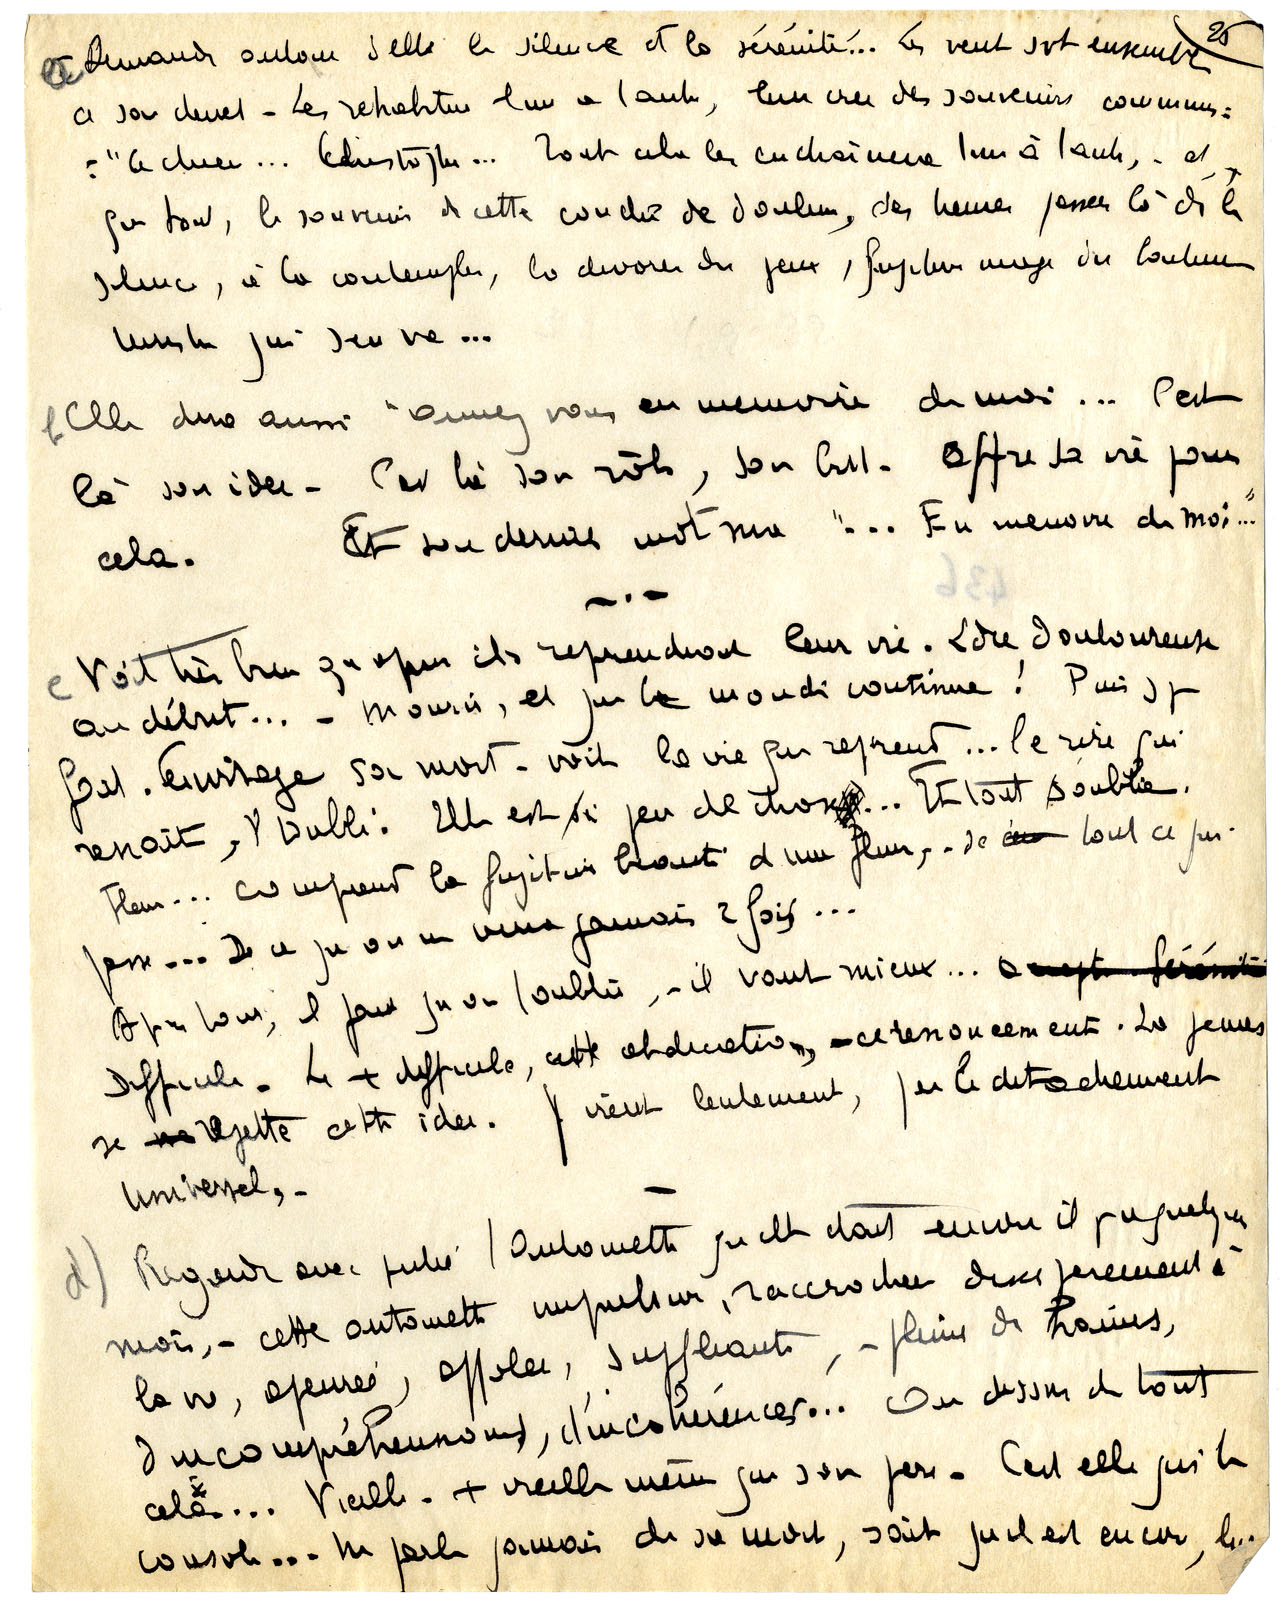 25
Demande autour d'elle le silence et la sérénité... Les veut sot ensemble
a son chevet - Les rehabitue l'un a l'autre, leur cree des souvenirs communs:
: "Ce cher... Christophe... Tout cela les enchainera l'un à l'autre, - et
que tout, le souvenir de cette couchée de douleur, des heures passees là ds le
silence, à la contempler, la devorer des yeux, fugitive image du bonheur
terrestre qui s'en va...
f Elle dira aussi "aimez vous en memoire de moi... C'est
là son idee - C'est là son rôle, son but - Offre sa vie pour
cela. Et son dernier mot sera "... En memoire de moi"...
- . -
e Voit très bien qu'apres ils reprendront leur vie. Idee douloureuse
au début... - Mourir, et que le monde continue! Puis s'y
fait. Envisage sa mort - voit la vie qui reprend... le rire qui
renait, l'oubli. Elle est si peu de chose... Et tout s'oublie.
Fleur... comprend la fugitive beauté d'une fleur, - de tout ce qui
passe... De ce qu'on ne verra jamais 2 fois...
Apres tout, il faut qu'on l'oublie, - il vaut mieux... accepte sérénité
Difficile - Le + difficile, cette abdication, - ce renoncement. La jeunesse
se rejette cette idee. Y vient lentement, par le detachement
universel, -
-
d) Regarde avec pitié l'Automette qu'elle était encore il y a quelques
mois, - cette automette impulsive, raccrochee desesperement à
la vie, apeurée, affolee, suppliante, - pleine de haines,
d'incompréhensions, d'incohérences... Au dessus de tout
cela... Vieille - + vieille même que son pere - C'est elle qui le
console... Ne parle jamais de sa mort, sait qu'il est encore, lui..